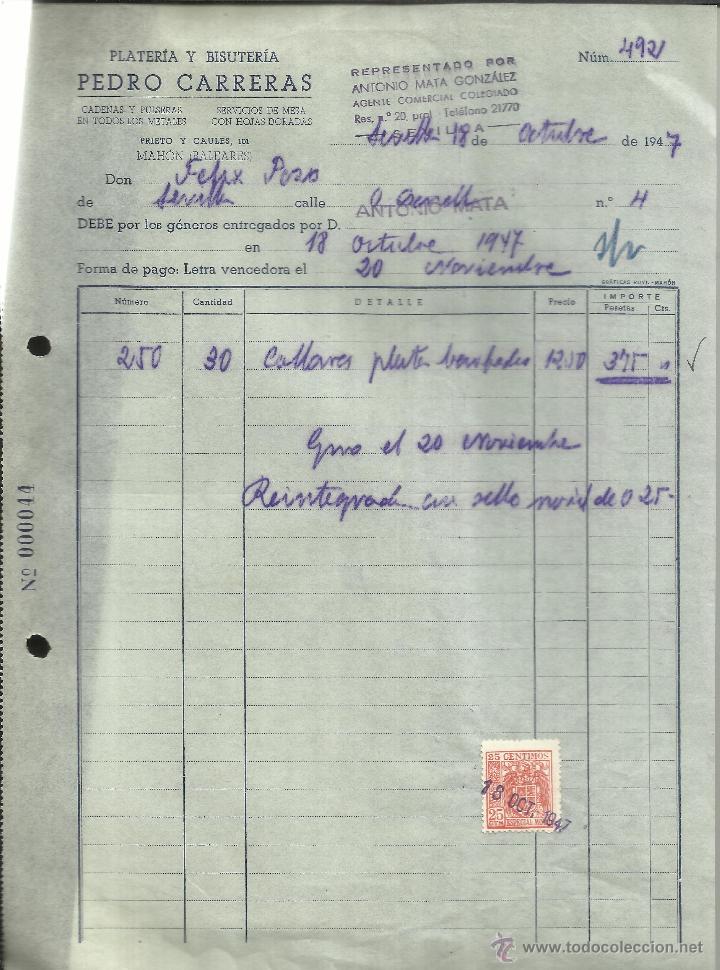 PLATERÍA Y BISUTERÍA
PEDRO CARRERAS
CADENAS Y PULSERAS
EN TODOS LOS METALES
SERVICIOS DE MESA
CON HOJAS DORADAS
PRIETO Y CAULES, 101
MAHÓN (BALEARES)
REPRESENTADO POR
ANTONIO MATA GONZÁLEZ
AGENTE COMERCIAL COLEGIADO
Res, n.º 20, pral - Teléfono 21770
SEVILLA
Núm. 4921
Sevilla 18 de Octubre de 1947
Don Felix Pozo
de Sevilla calle n.º 4
ANTONIO MATA
DEBE por los géneros entregados por D.
en 18 Octubre 1947
Forma de pago: Letra vencedora el 20 Noviembre
GRÁFICAS - MAHÓN
Número Cantidad DETALLE Precio IMPORTE
Pesetas Cts.
250 30 Collares plata 12.50 375
el 20 Noviembre
Reintegrada sello de 0 25-
Nº 000044
25 CENTIMOS
25
ESPECIAL
18 OCT. 1947
www.todocoleccion.net